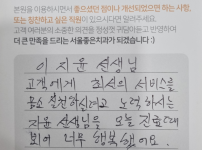 본원을 이용하시면서 좋으셨던 점이나 개선되었으면 하는 사항,
또는 칭찬하고 싶은 직원이 있으시다면 알려주세요.
고객 여러분의 소중한 의견을 정성껏 귀담아듣고 반영하여
더 큰 만족을 드리는 서울좋은치과가 되겠습니다 :)
이 지윤 선생님
고객에게 최선의 서비스를
몸소 실천하시려고 노력하시는
지윤 선생님을 오늘 진료때
뵈어 너무 행복했어요.